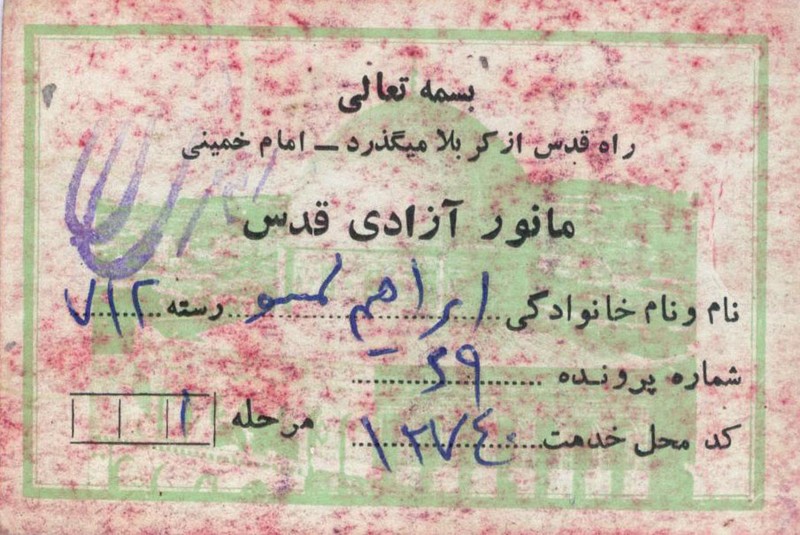 بسمه تعالی
راه قدس از کربلا میگذرد ــ امام خمینی
مانور آزادی قدس
نام و نام خانوادگی ابراهیم رسته ۷۱۲
شماره پرونده ۴۶۹
کد محل خدمت ۱۲۷۴۰
مرحله ۱